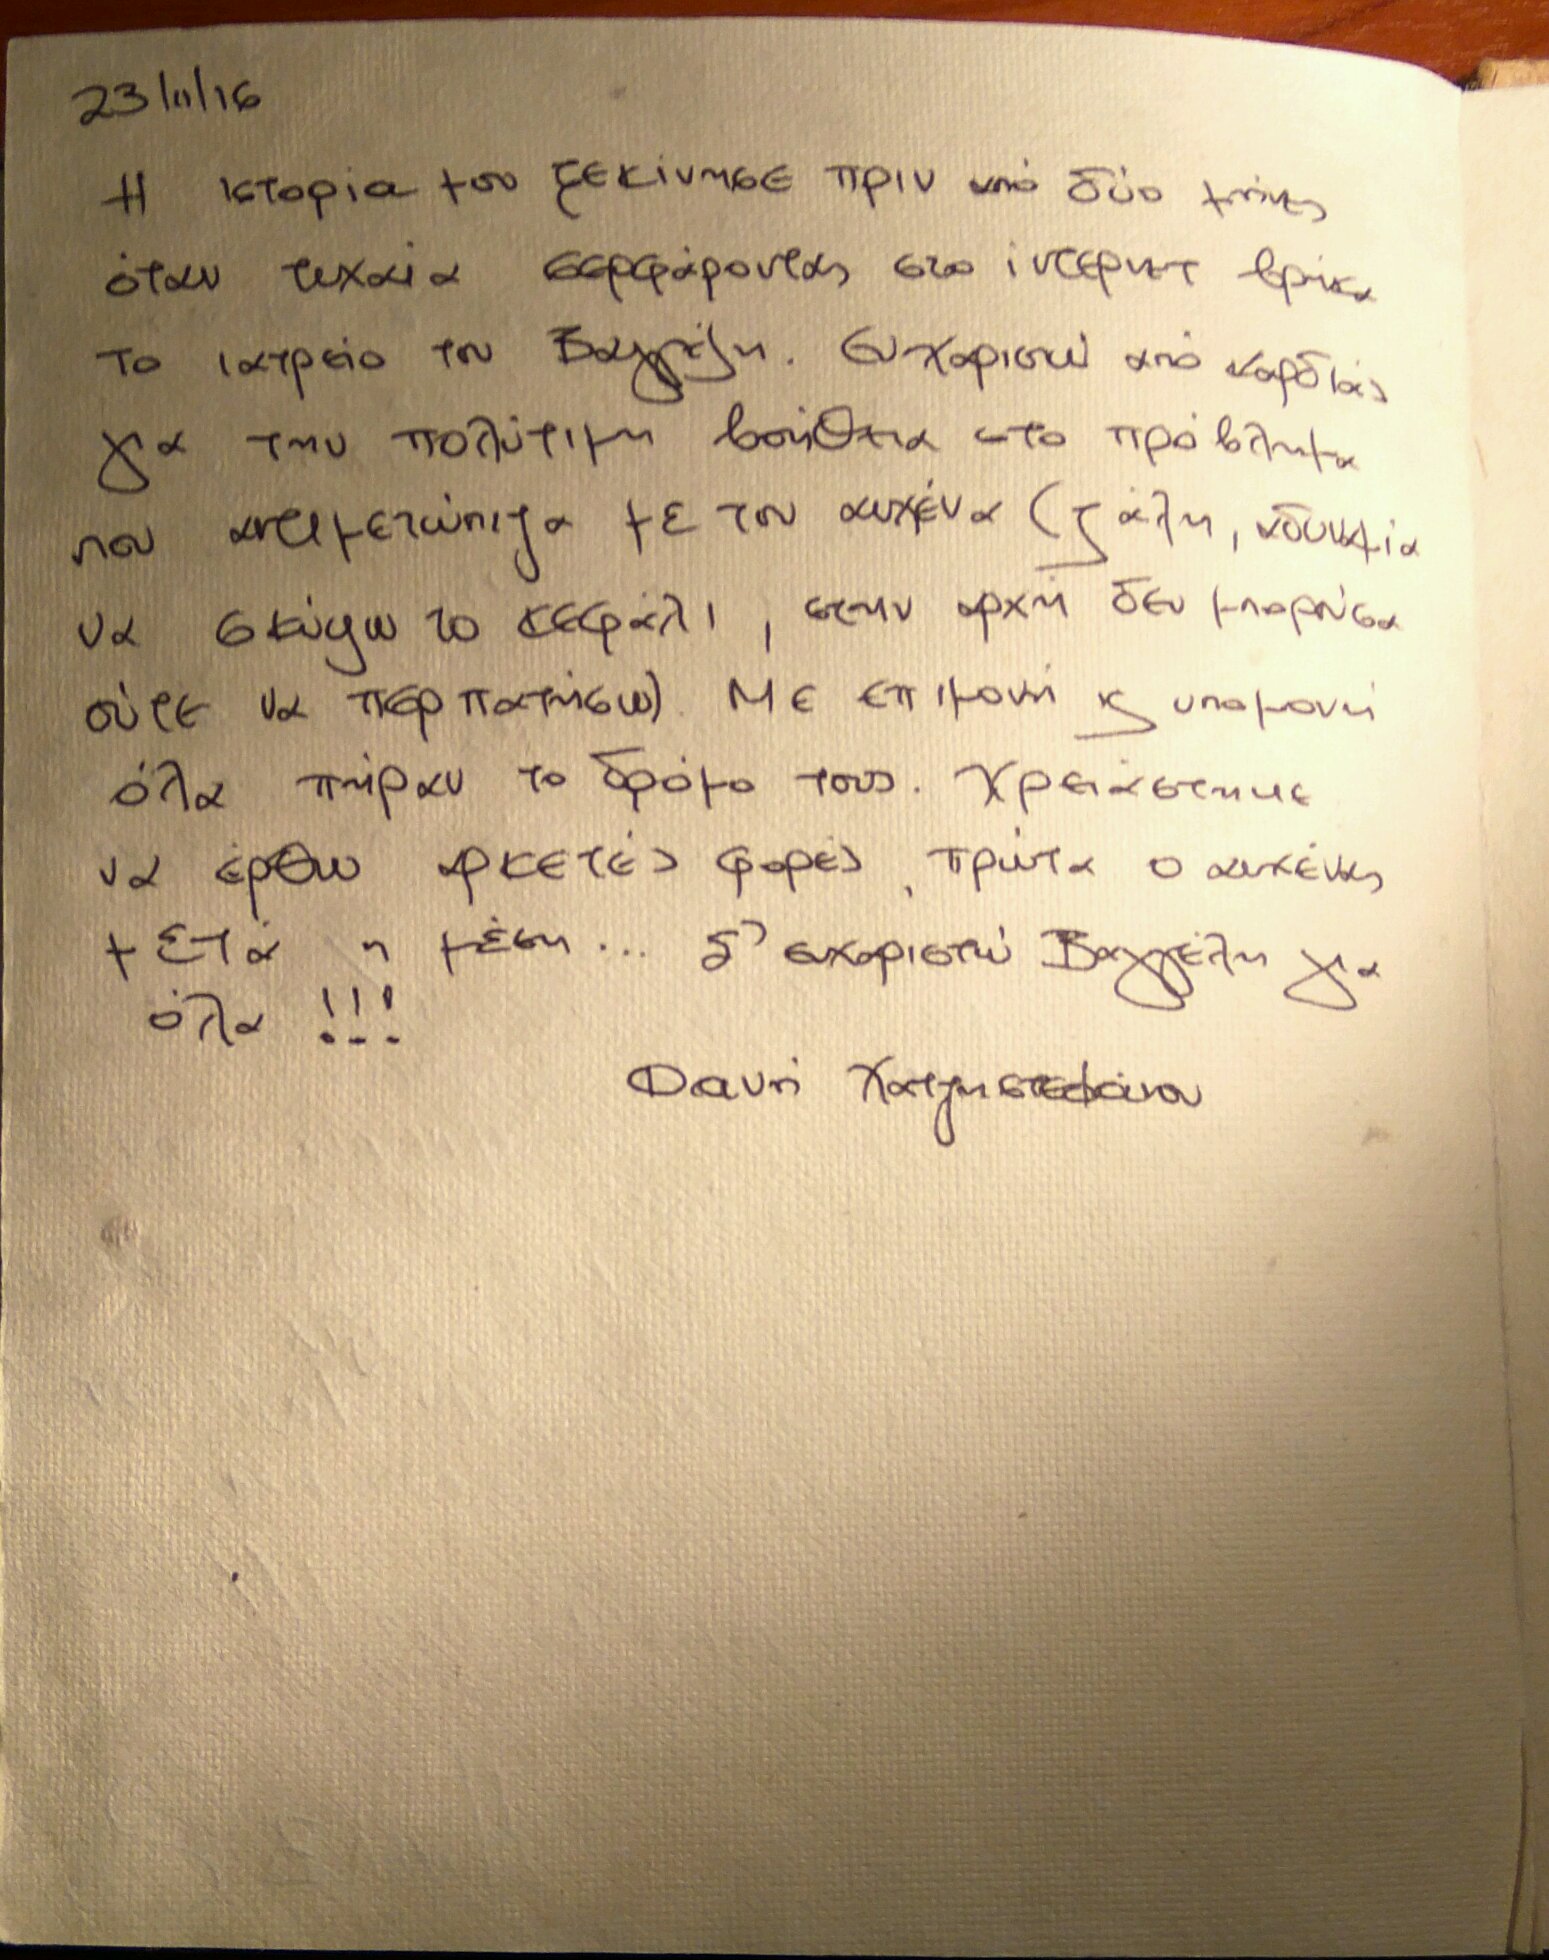 23/11/16
Η ιστορία μου ξεκίνησε πριν από δύο μήνες
όταν τυχαία σερφάροντας στο ίντερνετ βρήκα
το ιατρείο του Βαγγέλη. Ευχαριστώ από καρδιάς
για την πολύτιμη βοήθεια στο πρόβλημα
που αντιμετώπιζα με τον αυχένα (ζάλη, αδυναμία
να σκύψω το κεφάλι, στην αρχή δεν μπορούσα
ούτε να περπατήσω). Με επιμονή κ υπομονή
όλα πήραν το δρόμο τους. Χρειάστηκε
να έρθω αρκετές φορές, πρώτα ο αυχένας
μετά η μέση... Σ' ευχαριστώ Βαγγέλη για
όλα !!!
Φανή Χατζηστεφάνου